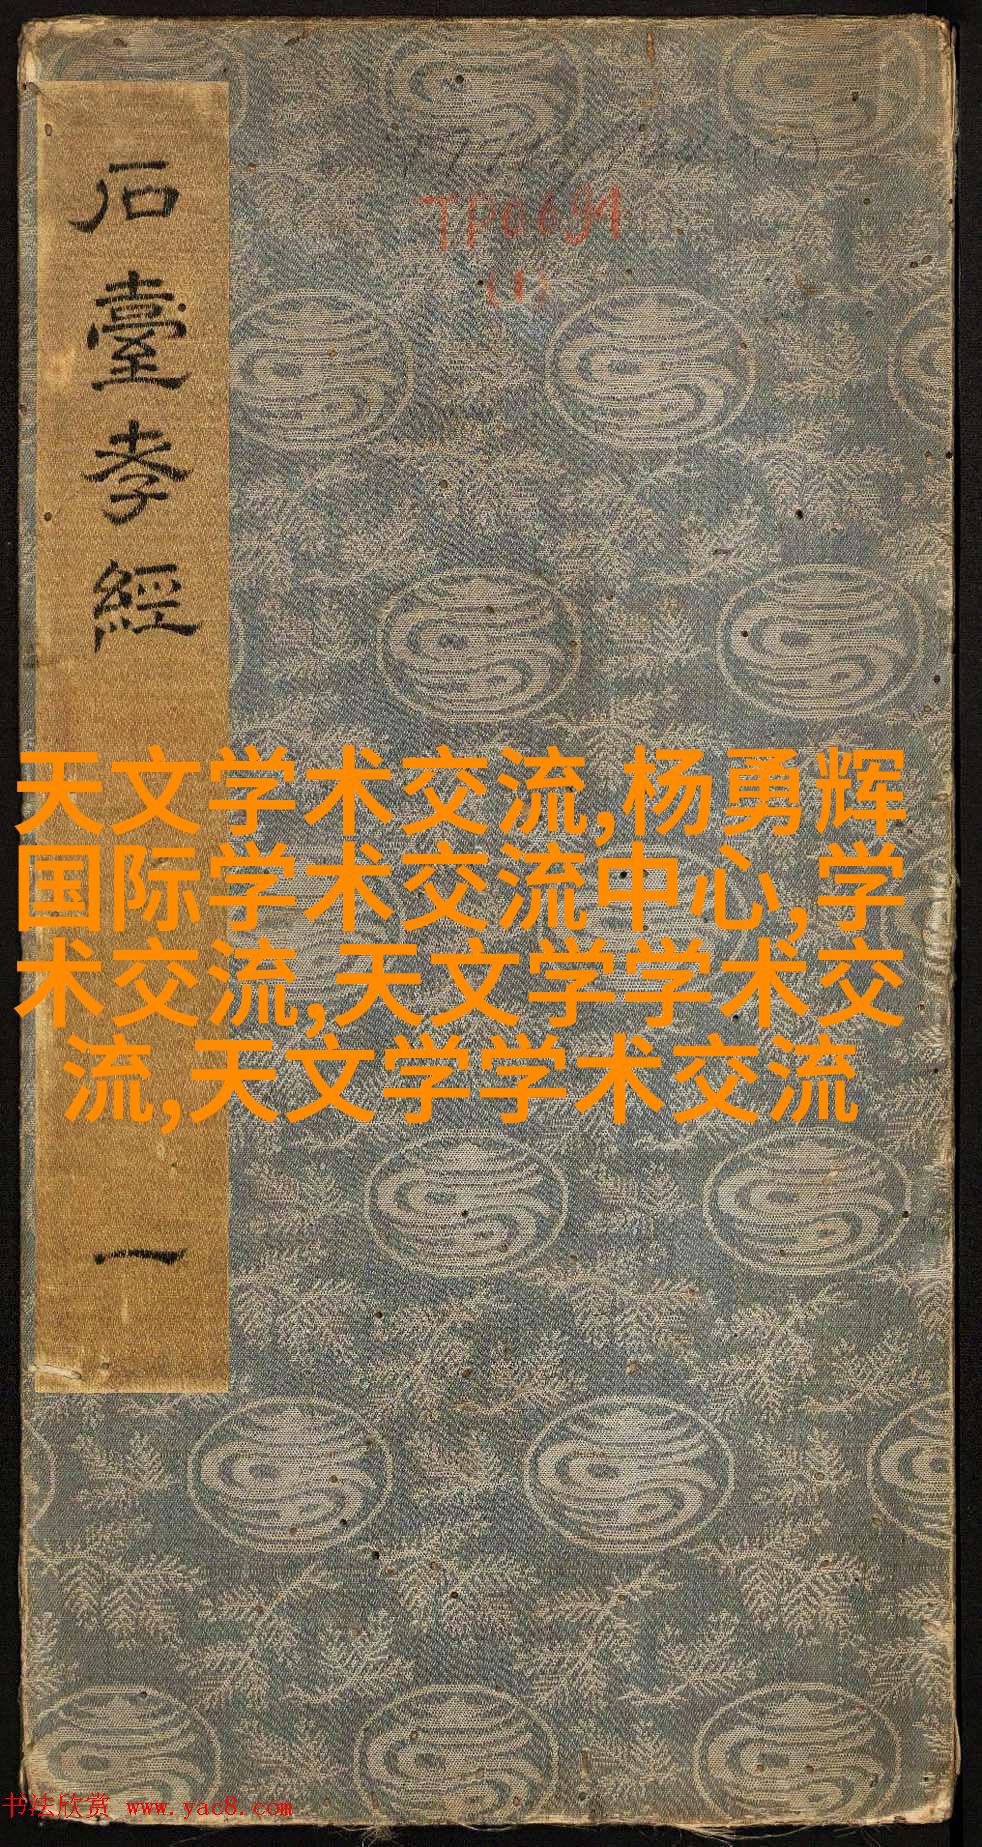 石臺孝經
一
TP0691
(1)
天文学术交流,杨勇辉
国际学术交流中心,学
术交流,天文学学术交
流,天文学学术交流
书法欣赏 www.yac8.com